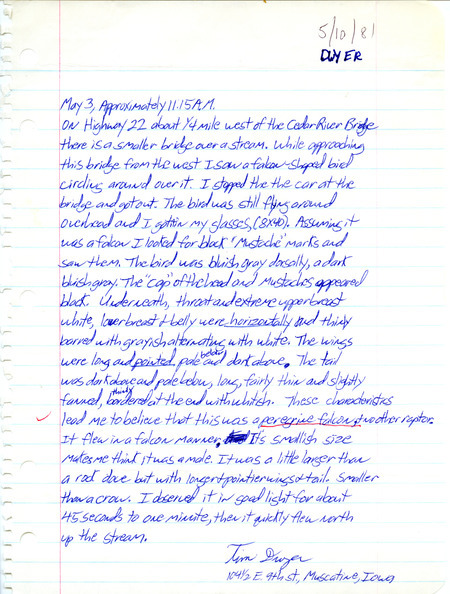 5/10/81
DWYER
May 3, Approximately 11:15 A.M.
On Highway 22 about 1/4 mile west of the Cedar River Bridge
there is a smaller bridge over a stream. While approaching
this bridge from the west I saw a falcon-shaped bird
circling around over it. I stopped the the car at the
bridge and got out. The bird was still flying around
overhead and I got him in my glasses, (8x40). Assuming it
was a falcon I looked for black "mustache" marks and
saw them. The bird was bluish gray dorsally, a dark
bluish gray. The "cap" of the head and mustaches appeared
black. Underneath, throat and extreme upper breast
white, lower breast & belly were horizontally and thinly
barred with grayish alternating with white. The wings
were long and pointed, pale below and dark above. The tail
was dark above and pale below, long, fairly thin and slightly
fanned, thinly bordered at the end with whitish. These characteristics
lead me to believe that this was a peregrine falcon, & no other raptor.
It flew in a falcon manner. Its smallish size
makes me think it was a male. It was a little larger than
a rock dove but with longer & pointier wings & tail. Smaller
than a crow. I observed it in good light for about
45 seconds to one minute, then it quickly flew north
up the stream.
Tim Dwyer
109 1/2 E. 9th St, Muscatine, Iowa